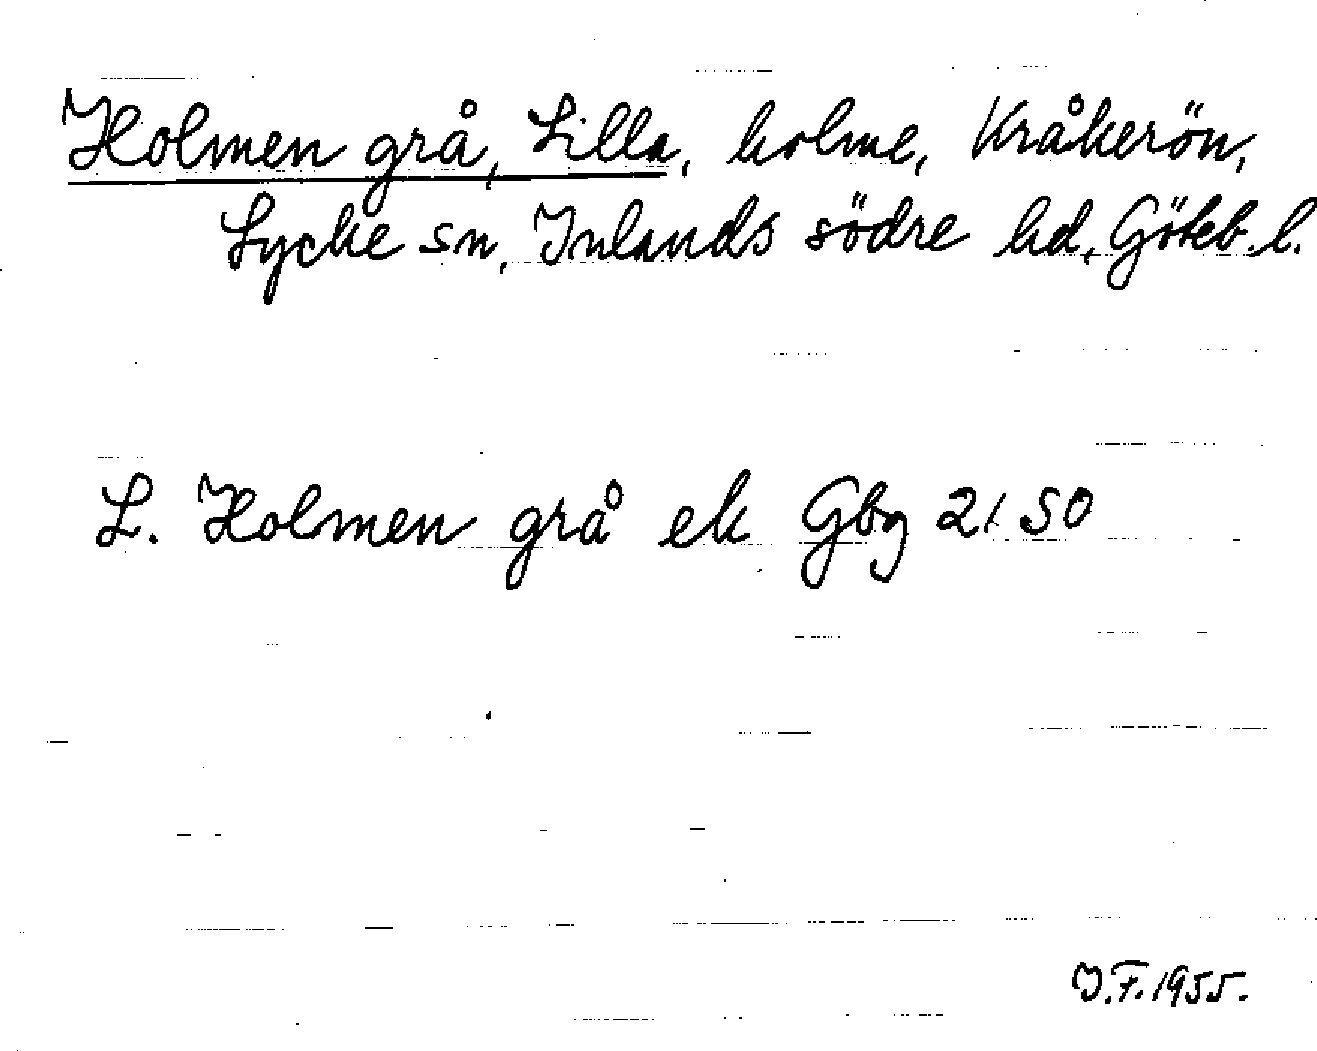 Holmen grå, Lilla, holme, Kråkerön,
Lycke sn, Inlands södre hd, Göteb. l.
L. Holmen grå ek Gbg 21 50
I.F. 1955.